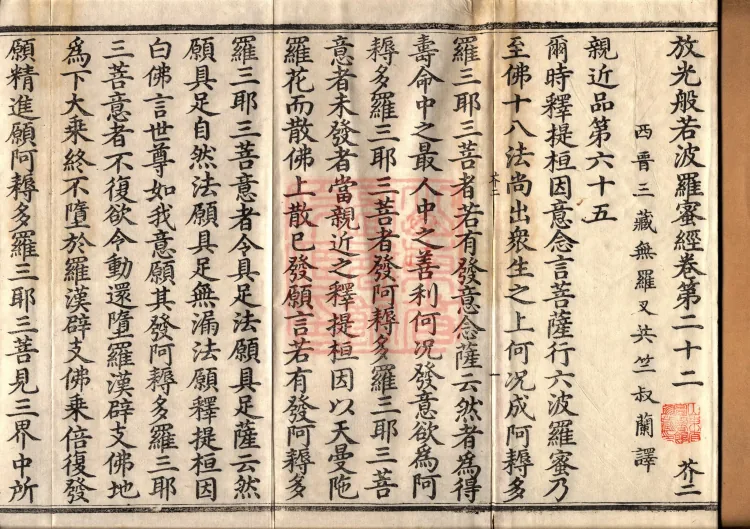 放光般若波羅蜜經卷第二十二 芥二
西晉三藏無羅叉共竺叔蘭譯
親近品第六十五
爾時釋提桓因意念言菩薩行六波羅蜜乃
至佛十八法尚出衆生之上何況成阿耨多
芥二
羅三耶三菩者若有發意念薩云然者為得
壽命中之最人中之善利何況發意欲為阿
耨多羅三耶三菩者發阿耨多羅三耶三菩
意者未發者當親近之釋提桓因以天曼陁
羅花而散佛上散已發願言若有發阿耨多
羅三耶三菩意者令具足法願具足薩云然
願具足自然法願具足無漏法願釋提桓因
白佛言世尊如我意願其發阿耨多羅三耶
三菩意者不復欲令動還墮羅漢辟支佛地
為下大乘終不墮於羅漢辟支佛乘倍復發
願精進願阿耨多羅三耶三菩見三界中所